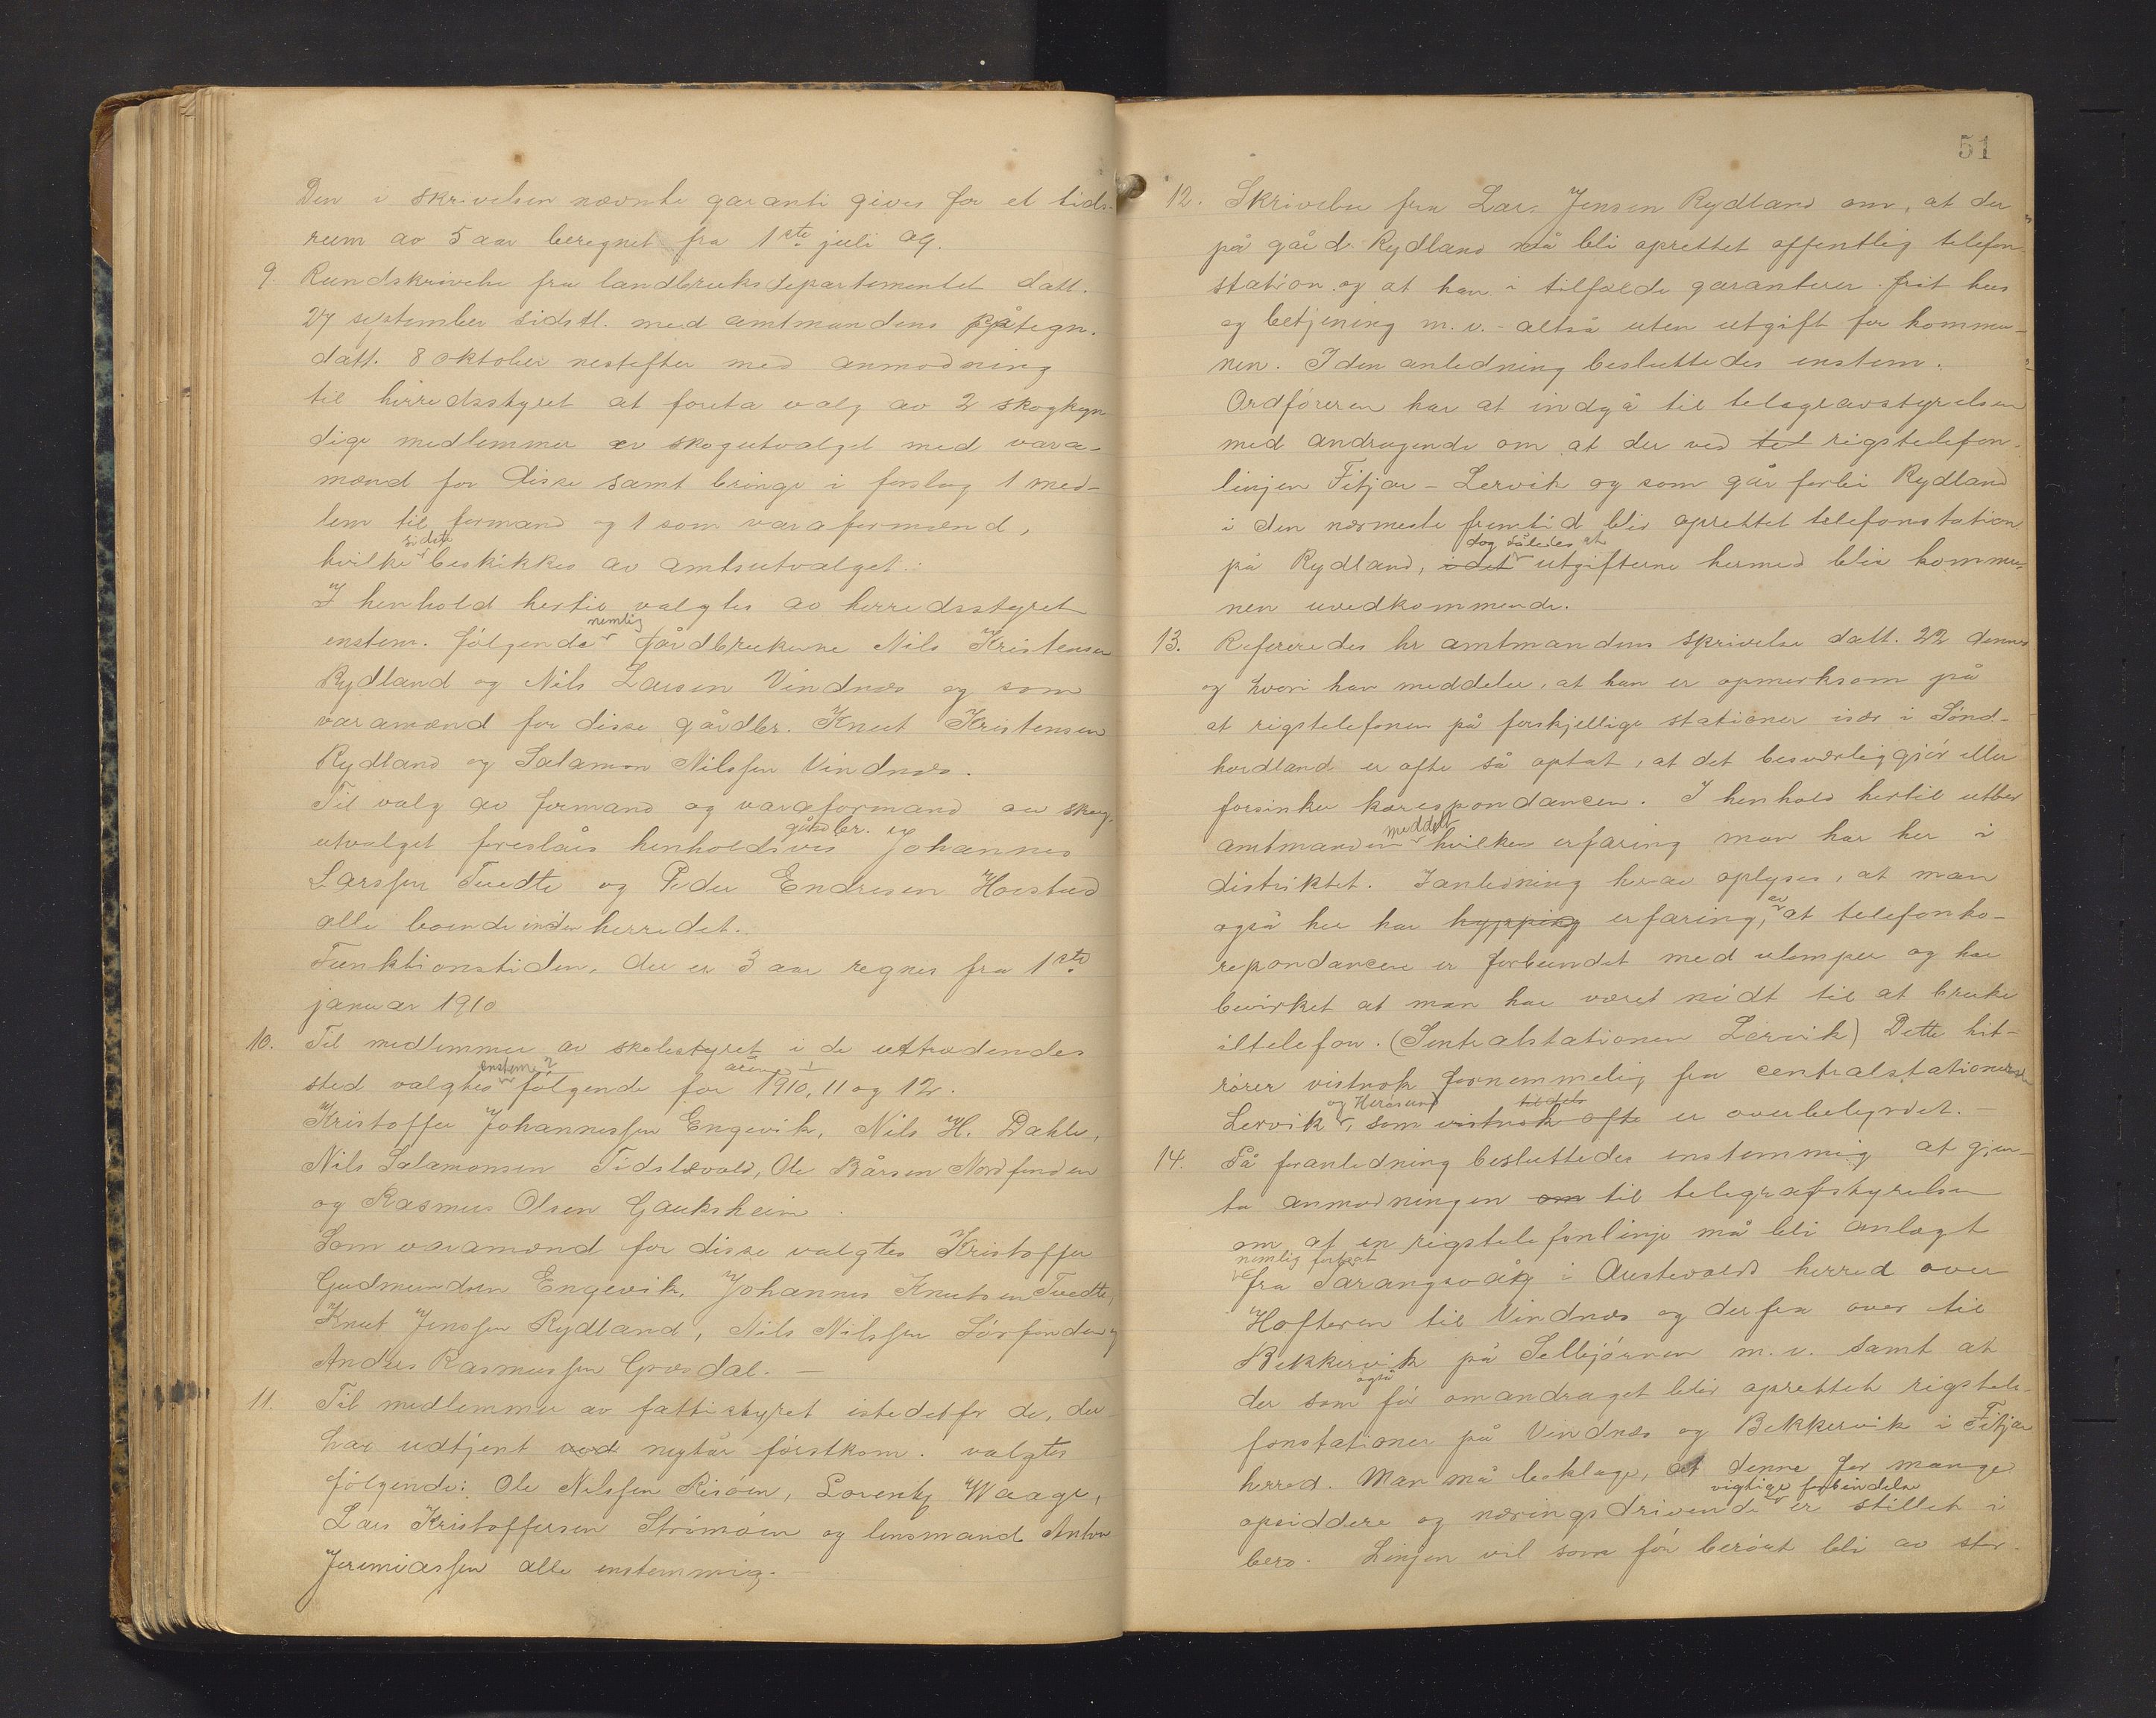 Den i skrivelsen nævnte garanti gives for et tids-
rum av 5 aar beregnet fra 1ste juli 09.
9. Rundskrivelse fra landbruksdepartementet datt.
27 september sidstl. med amtmandens påtegn.
datt. 8 oktober nestefter med anmodning
til herredsstyret at foreta valg av 2 skogkyn
dige medlemmer av skogutvalget med vara-
mænd for disse samt bringe i forslag 1 med-
lem til formand og 1 som varaformænd,
sidste
hvilke beskikkes av amtsutvalget.
I henhold hertil valgtes av herredsstyret
nemlig
enstem. følgende gårdbrukerne Nils Kristensen
Rydland og Nils Larsen Vindnæs og som
varamænd for disse gårdbr. Knut Kristensen
Rydland og Salamon Nilssen Vindnæs.
Til valg av formand og varaformand av skog-
gårdbr.
utvalget foreslåes henholdsvis Johannes
Larssen Tvedte og Peder Endresen Havstad
alle boende inden herredet.
Funktionstiden, der er 3 aar regnes fra 1ste
januar 1910
10. Til medlemmer av skolestyret i de uttrædendes
enstem. årene
sted valgtes følgende for 1910, 11 og 12.
Kristoffer Johannessen Engevik, Nils H. Dahle,
Nils Salamonsen Tidslevold, Ole Bårsen Nordfonden
og Rasmus Olsen Gauksheim.
Som varamænd for disse valgtes Kristoffer
Gudmundsen Engevik, Johannes Knutsen Tvedte,
Knut Jenssen Rydland, Nils Nilssen Sørfonden og
Anders Rasmussen Græsdal.
11. Til medlemmer av fattistyret istedetfor de, der
har udtjent ved nytår førstkom. valgtes
følgende: Ole Nilssen Risøen, Lorentz Waage,
Lars Kristoffersen Strømøen og lensmand Anton
Jeremiassen alle enstemmig.
51
12. Skrivelse fra Lars Jensen Rydland om, at der
på gård Rydland må bli oprettet offentlig telefon
station og at han i tilfælde garanterer frit hus
og betjening m.v. - altså uten utgift for kommu-
nen. I den anledning besluttedes enstem.
Ordføreren har at indgå til telegravstyrelsen
med andragende om at der ved tel rigstelefon-
linjen Fitjar - Lervik og som går forbi Rydland
i den nærmeste fremtid blir oprettet telefonstation
dog således at
på Rydland, idet utgifterne hermed blir kommu-
nen uvedkommende.
13. Refereredes hr amtmandens skrivelse datt. 22 dennes
og hvori han meddeler, at han er opmerksom på
at rigstelefonen på forskjellige stationer især i Sønd-
hordland er ofte så optat, at det besværliggjør eller
forsinker korespondancen. I henhold hertil utber
meddelt
amtmanden hvilken erfaring man har her i
distriktet. I anledning herav oplyses, at man
av
også her har hyppig erfaring, at telefonko-
repondancen er forbundet med ulemper og har
bevirket at man har været nødt til at bruke
iltelefon. (Sentralstationen Lervik) Dette hit-
rører vistnok fornemmelig fra centralstationerne
og Herøsund tildels
Lervik, som vistnok ofte er overbelyrdet.
14. På foranledning besluttedes enstemmig at gjen-
ta anmodningen om til telegrafstyrelsen
om at en rigstelefonlinje må bli anlagt
nemlig fortsat
fra Tarangsvåg i Austevolds herred over
Hofteren til Vindnæs og derfra over til
Bekkervik på Selbjørnen m.v. samt at
også
der som før omandraget blir oprettet rigstele-
fonstationer på Vindnæs og Bekkervik i Fitjar
herred. Man må beklage, at denne for mange
vigtige forbindelse
opsiddere og næringsdrivende er stillet i
bero. Linjen vil som før berørt bli av stor